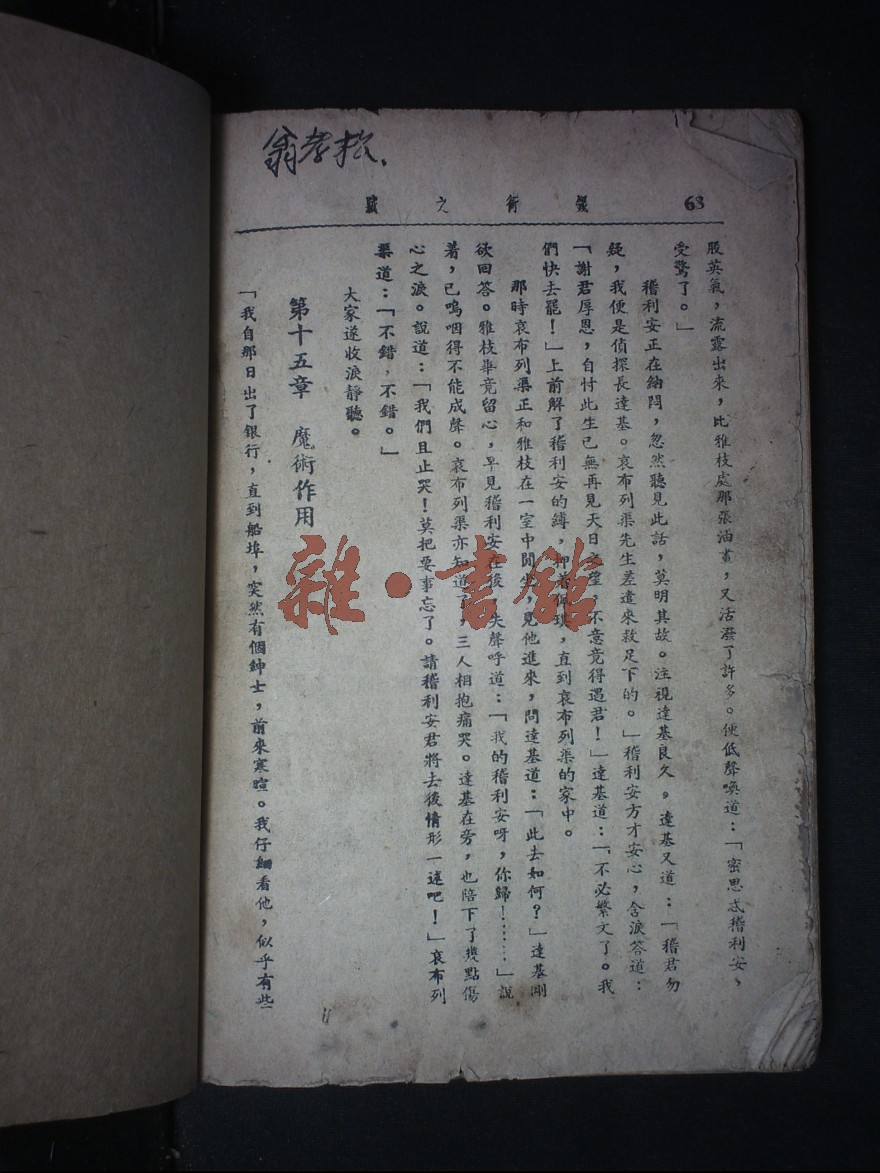 翁孝松
63
術之
股英氣，流露出來，比雅枝處那張油畫，又活潑了許多。便低聲喚道：「密思忒稽利安，
受驚了。」
稽利安正在納悶，忽然聽見此話，莫明其故。注視達基良久，達基又道：「稽君勿
疑，我便是偵探長達基。哀布列渠先生差遣來救足下的。」稽利安方才安心，含淚答道：
「謝君厚恩，自忖此生已無再見天日之望，不意竟得遇君！」達基道：「不必繁文了。我
們快去罷！」上前解了稽利安的縛，押着佩琪，直到哀布列渠的家中。
那時哀布列渠正和雅枝在一室中閒坐，見他進來，問達基道：「此去如何？」達基剛
欲回答。雅枝畢竟留心，早見稽利安在後，失聲呼道：「我的稽利安呀，你歸！……」說
着，已嗚咽得不能成聲。哀布列渠亦知道了，三人相抱痛哭。達基在旁，也陪下了幾點傷
心之淚。說道：「我們且止哭！莫把要事忘了。請稽利安君將去後情形一述吧！」哀布列
渠道：「不錯，不錯。」
大家遂收淚靜聽。
第十五章　魔術作用
「我自那日出了銀行，直到船埠，突然有個紳士，前來寒暄。我仔細看他，似乎有些
雜·書館